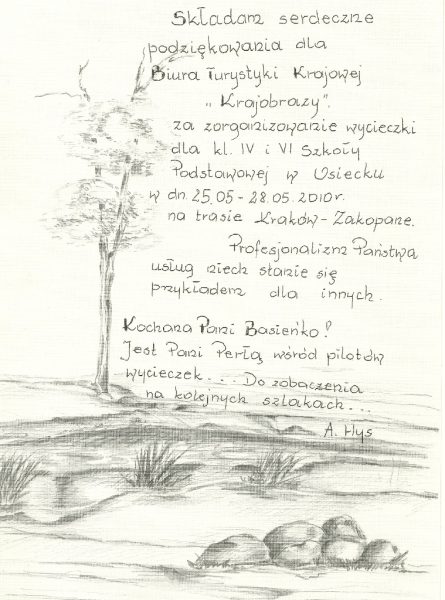 Składam serdeczne
podziękowania dla
Biura Turystyki Krajowej
„Krajobrazy".
za zorganizowanie wycieczki
dla kl. IV i VI Szkoły
Podstawowej w Osiecku
w dn. 25.05 - 28.05.2010 r.
na trasie Kraków - Zakopane.
Profesjonalizm Państwa
usług niech stanie się
przykładem dla innych.
Kochana Pani Basieńko!
Jest Pani Perłą wśród pilotów
wycieczek... Do zobaczenia
na kolejnych szlakach...
A. Hys